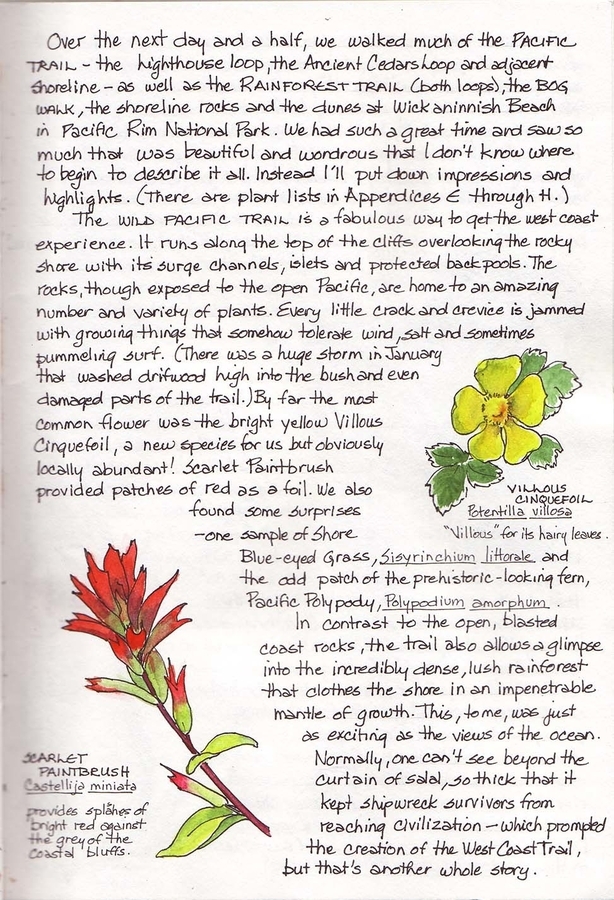 Over the next day and a half, we walked much of the PACIFIC
TRAIL - the lighthouse loop, the Ancient Cedars Loop and adjacent
shoreline - as well as the RAINFOREST TRAIL (both loops), the BOG
WALK, the shoreline rocks and the dunes at Wickaninnish Beach
in Pacific Rim National Park. We had such a great time and saw so
much that was beautiful and wondrous that I don't know where
to begin to describe it all. Instead I'll put down impressions and
highlights. (There are plant lists in Appendices E through H.)
The WILD PACIFIC TRAIL is a fabulous way to get the west coast
experience. It runs along the top of the cliffs overlooking the rocky
shore with its surge channels, islets and protected back pools. The
rocks, though exposed to the open Pacific, are home to an amazing
number and variety of plants. Every little crack and crevice is jammed
with growing things that somehow tolerate wind, salt and sometimes
pummeling surf. (There was a huge storm in January
that washed drifwood high into the bush and even
damaged parts of the trail.) By far the most
common flower was the bright yellow Villous
Cinquefoil, a new species for us but obviously
locally abundant! Scarlet Paintbrush
provided patches of red as a foil. We also
found some surprises
- one sample of Shore
Blue-eyed Grass, Sisyrinchium littorale and
the odd patch of the prehistoric-looking fern,
Pacific Polypody, Polypodium amorphum.
In contrast to the open, blasted
coast rocks, the trail also allows a glimpse
into the incredibly dense, lush rainforest
that clothes the shore in an impenetrable
mantle of growth. This, to me, was just
as exciting as the views of the ocean.
Normally, one can't see beyond the
curtain of salal, so thick that it
kept shipwreck survivors from
reaching civilization - which prompted
the creation of the West Coast Trail,
but that's another whole story.
VILLOUS
CINQUEFOIL
Potentilla villosa
"Villous" for its hairy leaves.
SCARLET
PAINTBRUSH
Castellija miniata
provides splahes of
bright red against
the grey of the
coastal bluffs.